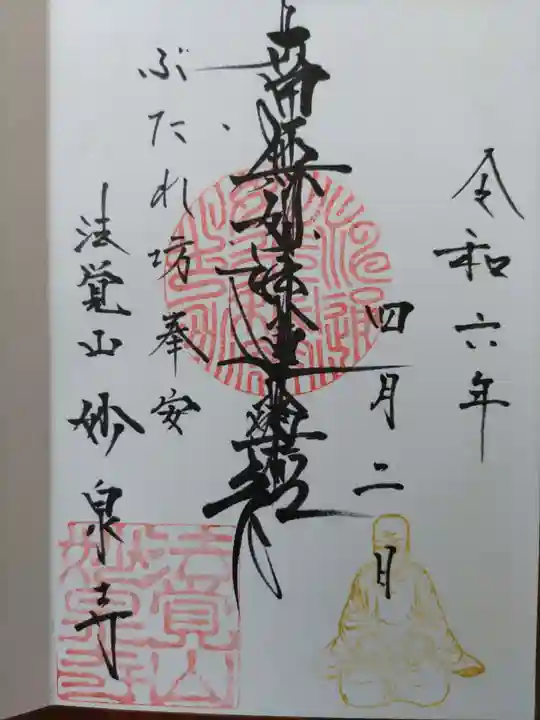 令和六年
四月二日
南無妙法蓮華経
ぶたれ坊奉安
法覚山 妙泉寺
法覚山
妙泉寺